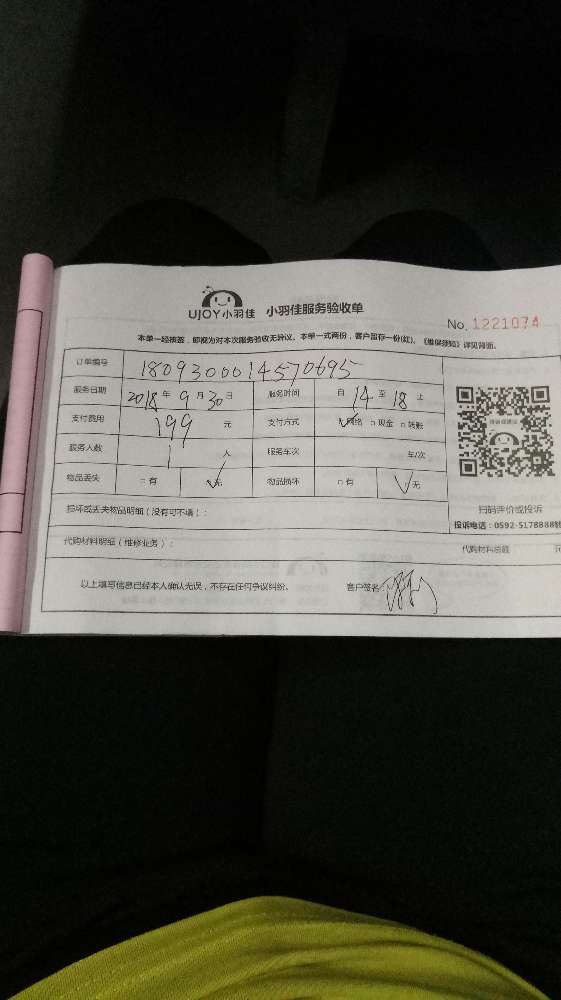 UJOY小羽佳 小羽佳服务验收单
No. 1221074
本单一经核签，即视为对本次服务验收无异议。本单一式两份，客户暂存一份(红)。《维保须知》详见背面。
订单编号 1809300014570695
服务日期 2018年9月30日 服务时间 自14至18止
支付费用 199元 支付方式 ☑网络 □现金 □转账
服务人数 1人 服务车次 车/次
物品丢失 □有 ☑无 物品损坏 □有 ☑无
扫码评价或投诉
损坏或丢失物品明细（没有可不填）：
投诉电话：0592-5178888转
代购材料明细（维修业务）： 代购材料总额 元
以上填写信息已经本人确认无误，不存在任何争议纠纷。 客户签名：